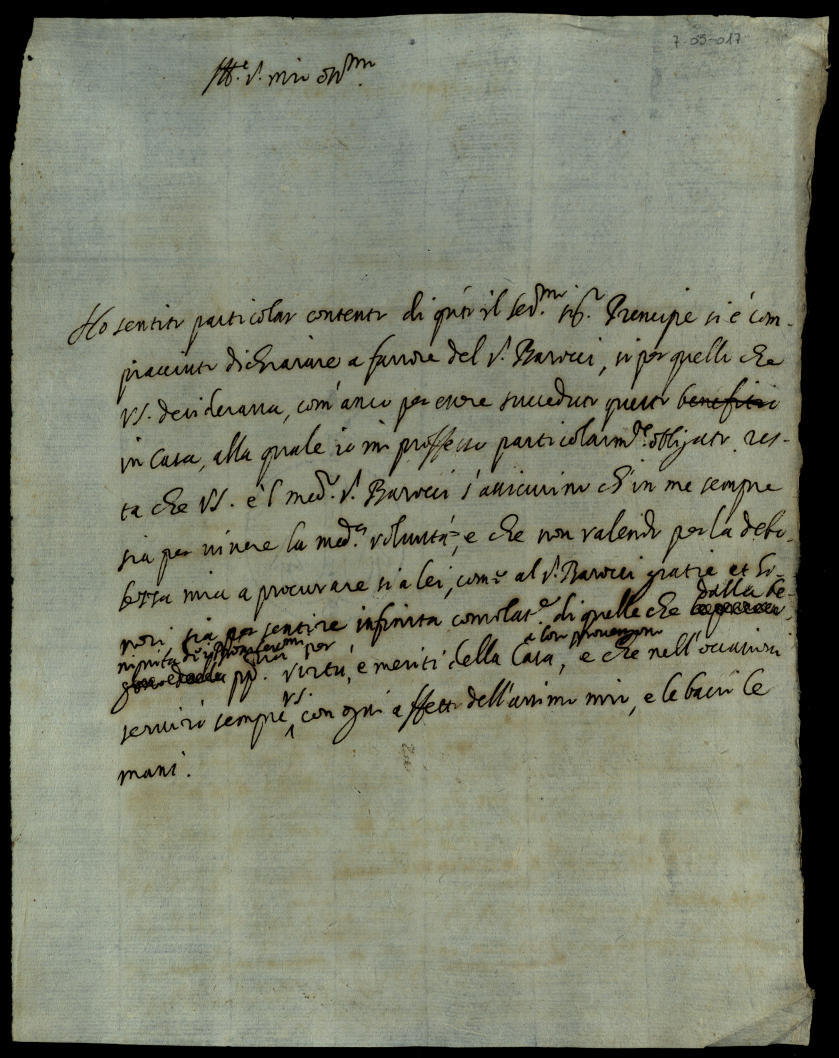 7-05-017
Ill.e s.r mio oss.mo
Ho sentito particolar contento di q.to il Ser.mo sig.r Prencipe si è com-
piacciuto dichiarare a favvore del s.r Barocci, si per quello che
VS. desiderava, com' anco per essere succeduto questo benefitio
in Casa, alla quale io mi professo particolarm.te obligato. res-
ta che VS. e 'l med.o s.r Barocci s'assicurino ch' in me sempre
sia per vivere la med.a voluntà, e che non valendo per la debo-
lezza mia a procurare si a lei, come al s.r Barocci gratie et ho-
nori, sia per sentire infinita consolat.e di quelle che dalla be-
nignità di per
pp. virtù, e meriti della Casa, e che nell' occasioni
a lor
servirò sempre VS. con ogni affetto dell' animo mio, e le bacio le
mani.